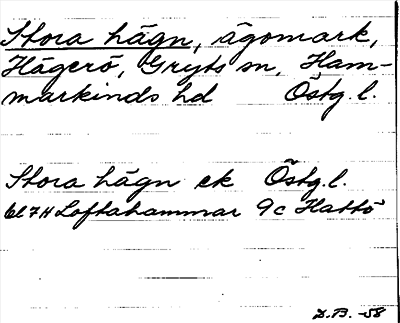 Stora hägn, ägomark,
Hägerö, Gryts sn, Ham-
markinds hd Östg. l.
Stora hägn ek Östg. l.
bl 7H Loftahammar 9c Hattö
D.B. -58